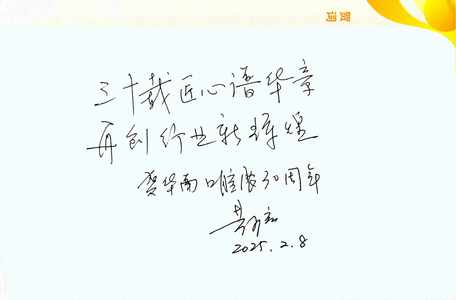 贺词
三十载匠心谱华章
再创行业新辉煌
贺华南口腔展30周年
2025.2.8